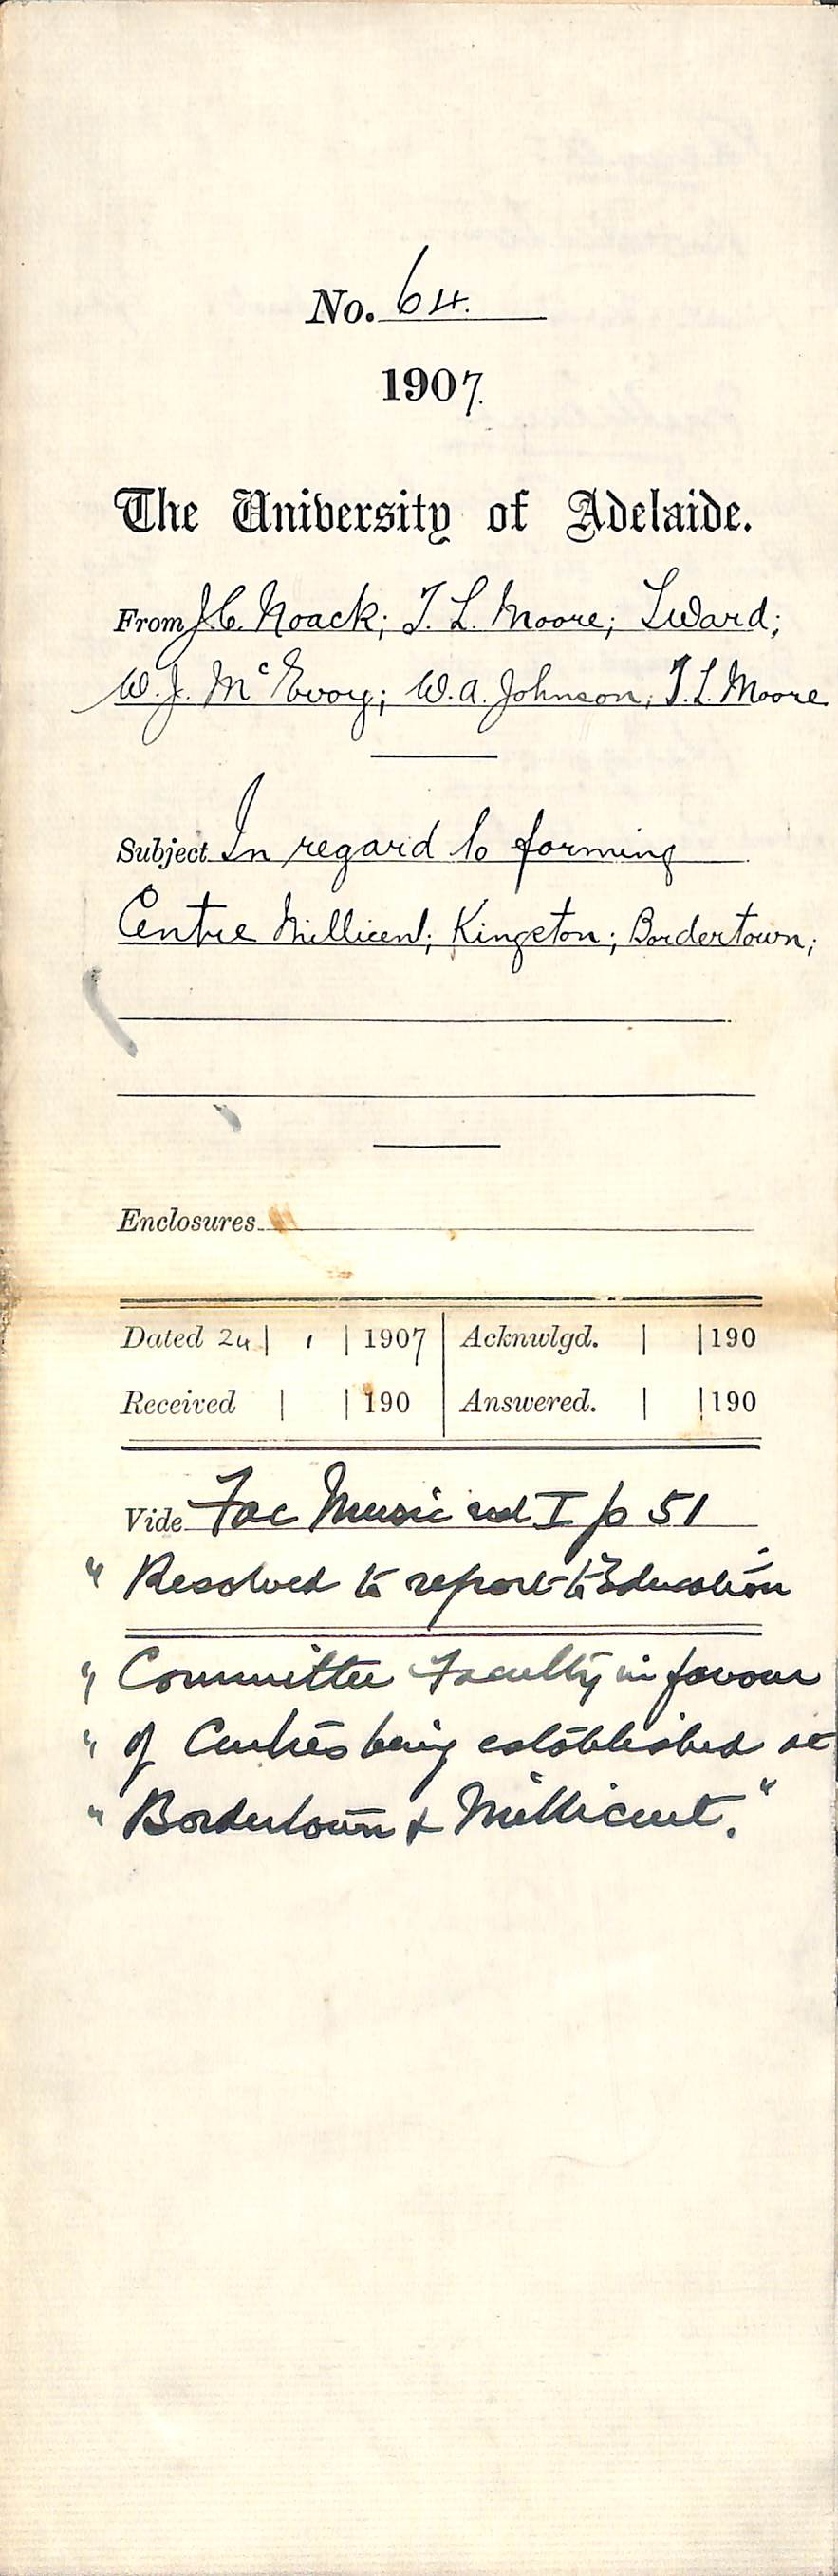 No. 64.
1907.
The University of Adelaide.
From J. C. Noack; T. L. Moore; T Ward;
W. J. McEvoy; W. A. Johnson; T. L. Moore
Subject In regard to forming
Centre Millicent; Kingston; Bordertown;
Enclosures
Dated 24 | 1 | 1907 | Acknwlgd. | | 190
Received | | 190 | Answered. | | 190
Vide Fac Music I p 51
" Resolved to report to Education
" Committee Faculty in favour
" of Centres being established at
" Bordertown & Millicent."